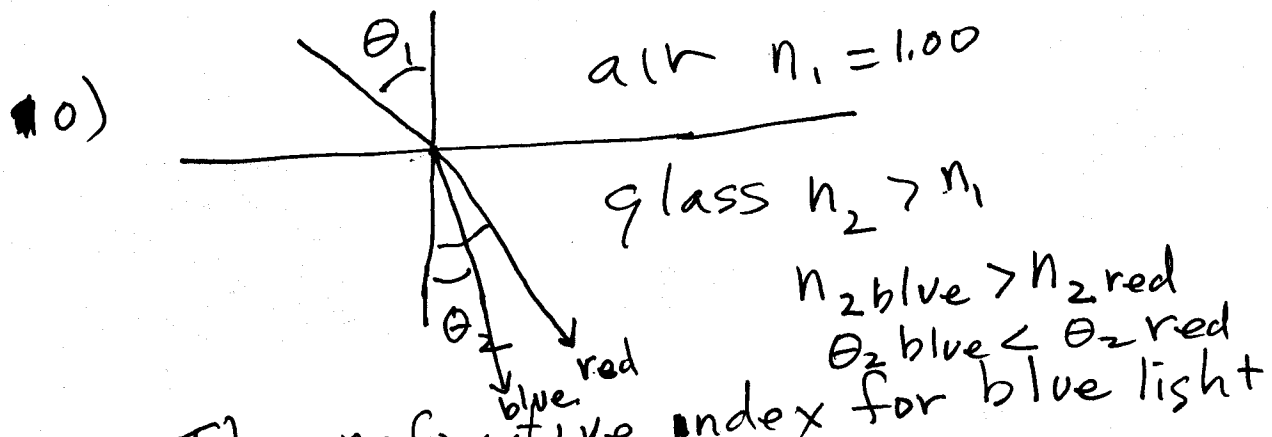 10)
θ₁
air n₁ = 1.00
glass n₂ > n₁
n₂ blue > n₂ red
θ₂ blue < θ₂ red
θ₂
red
blue
index for blue light